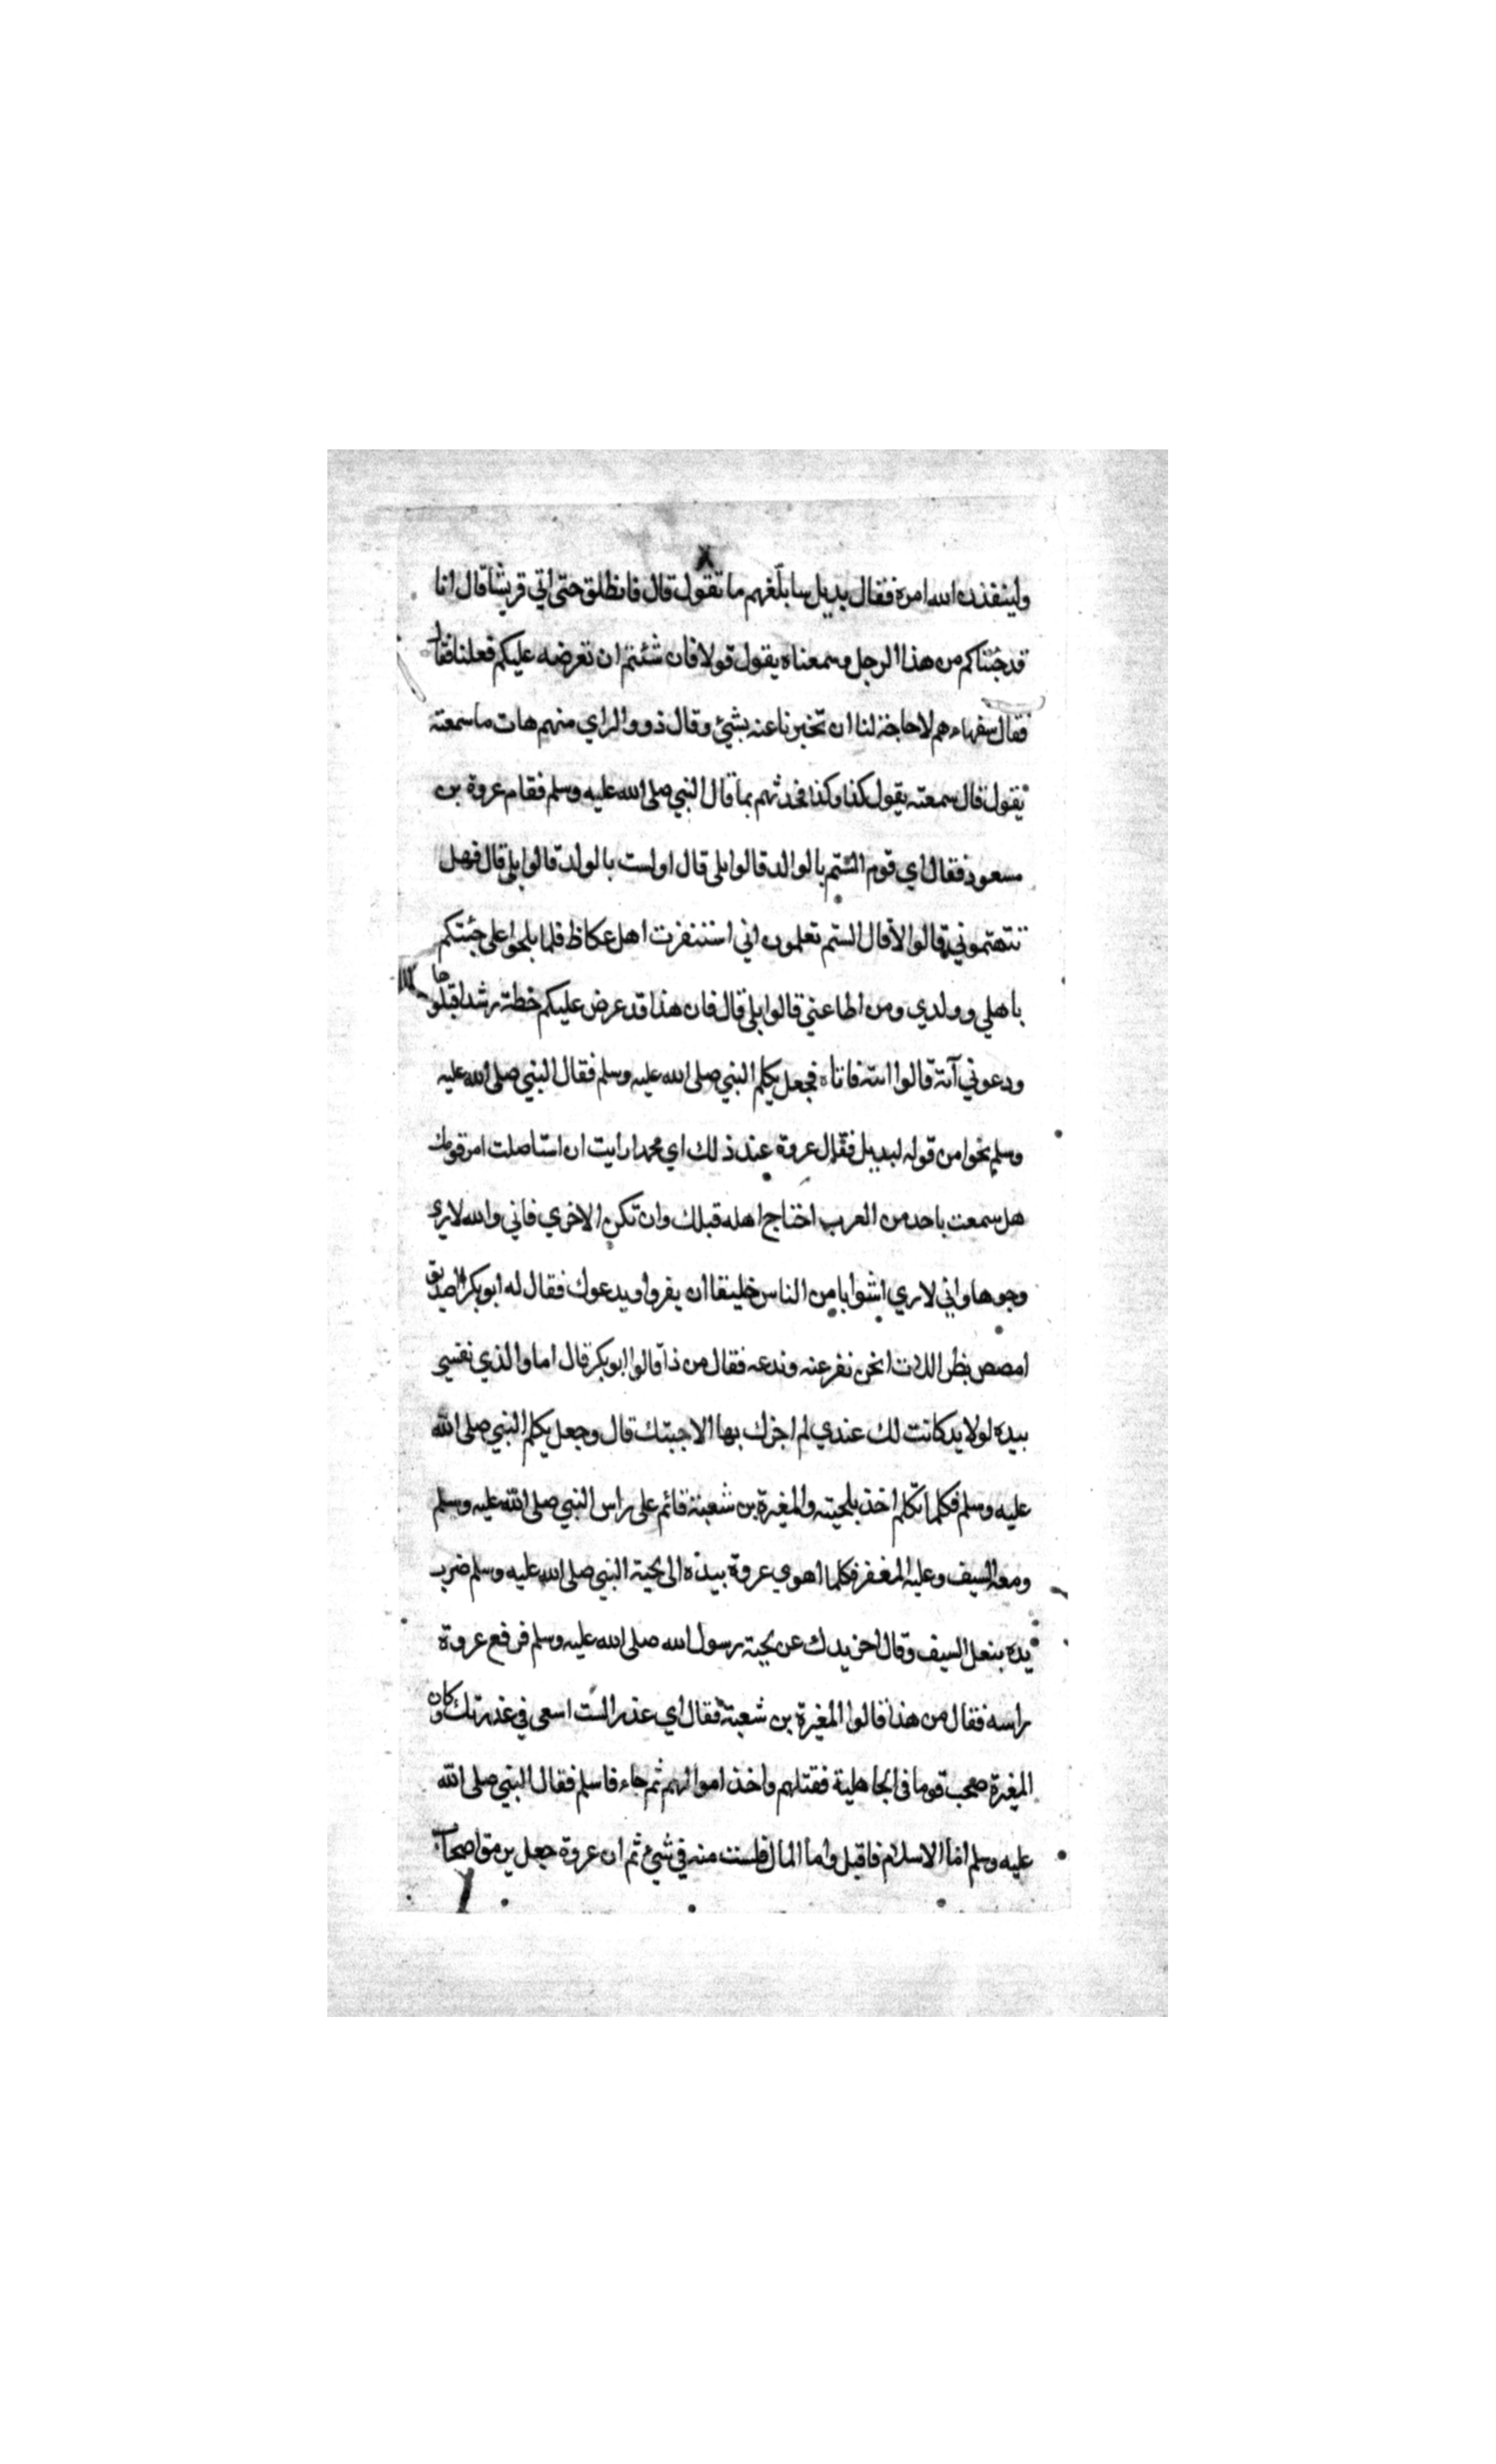 ولينفذن الله امره فقال بديل سابلغهم ما تقول قال فانطلق حتى اتي قريشا قال انا
قد جئناكم من هذا الرجل وسمعناه يقول قولا فان شئتم ان نعرضه عليكم فعلنا فقال
فقال سفهاءهم لا حاجة لنا ان تخبرنا عنه بشئ وقال ذووا الراي منهم هات ما سمعته
يقول قال سمعته يقول كذا وكذا فحدثهم بما قال النبي صلى الله عليه وسلم فقام عروة بن
مسعود فقال اي قوم الستم بالوالد قالوا بلى قال اولست بالولد قالوا بلى قال فهل
تتهموني قالوا لا قال الستم تعلمون اني استنفرت اهل عكاظ فلما بلحوا على جئتكم
باهلي وولدي ومن اطاعني قالوا بلى قال فان هذا قد عرض عليكم خطة رشد اقبلوها
ودعوني آته قالوا ائته فاتاه فجعل يكلم النبي صلى الله عليه وسلم فقال النبي صلى الله عليه
وسلم نحوا من قوله لبديل فقال عروة عند ذلك اي محمد ارايت ان استاصلت امر قومك
هل سمعت باحد من العرب اجتاح اهله قبلك وان تكن الاخري فاني والله لاري
وجوها واني لاري اشوابا من الناس خليقا ان يفروا ويدعوك فقال له ابوبكر الصديق
امصص بظر اللات انحن نفر عنه وندعه فقال من ذا قالوا ابوبكر قال اما والذي نفسي
بيده لولا يد كانت لك عندي لم اجزك بها الاجبتك قال وجعل يكلم النبي صلى الله
عليه وسلم فكلما تكلم اخذ بلحيته والمغيرة بن شعبة قائم على راس النبي صلى الله عليه وسلم
ومعه السيف وعليه المغفر فكلما اهوي عروة بيده الى لحية النبي صلى الله عليه وسلم ضرب
يده بنعل السيف وقال اخر يدك عن لحية رسول الله صلى الله عليه وسلم فرفع عروة
راسه فقال من هذا قالوا المغيرة بن شعبة فقال اي غدر الست اسعى في غدرتك وكان
المغيرة صحب قوما فى الجاهلية فقتلهم واخذ اموالهم ثم جاء فاسلم فقال النبي صلى الله
عليه وسلم اما الاسلام فاقبل واما المال فلست منه في شئ ثم ان عروة جعل يرمق اصحاب